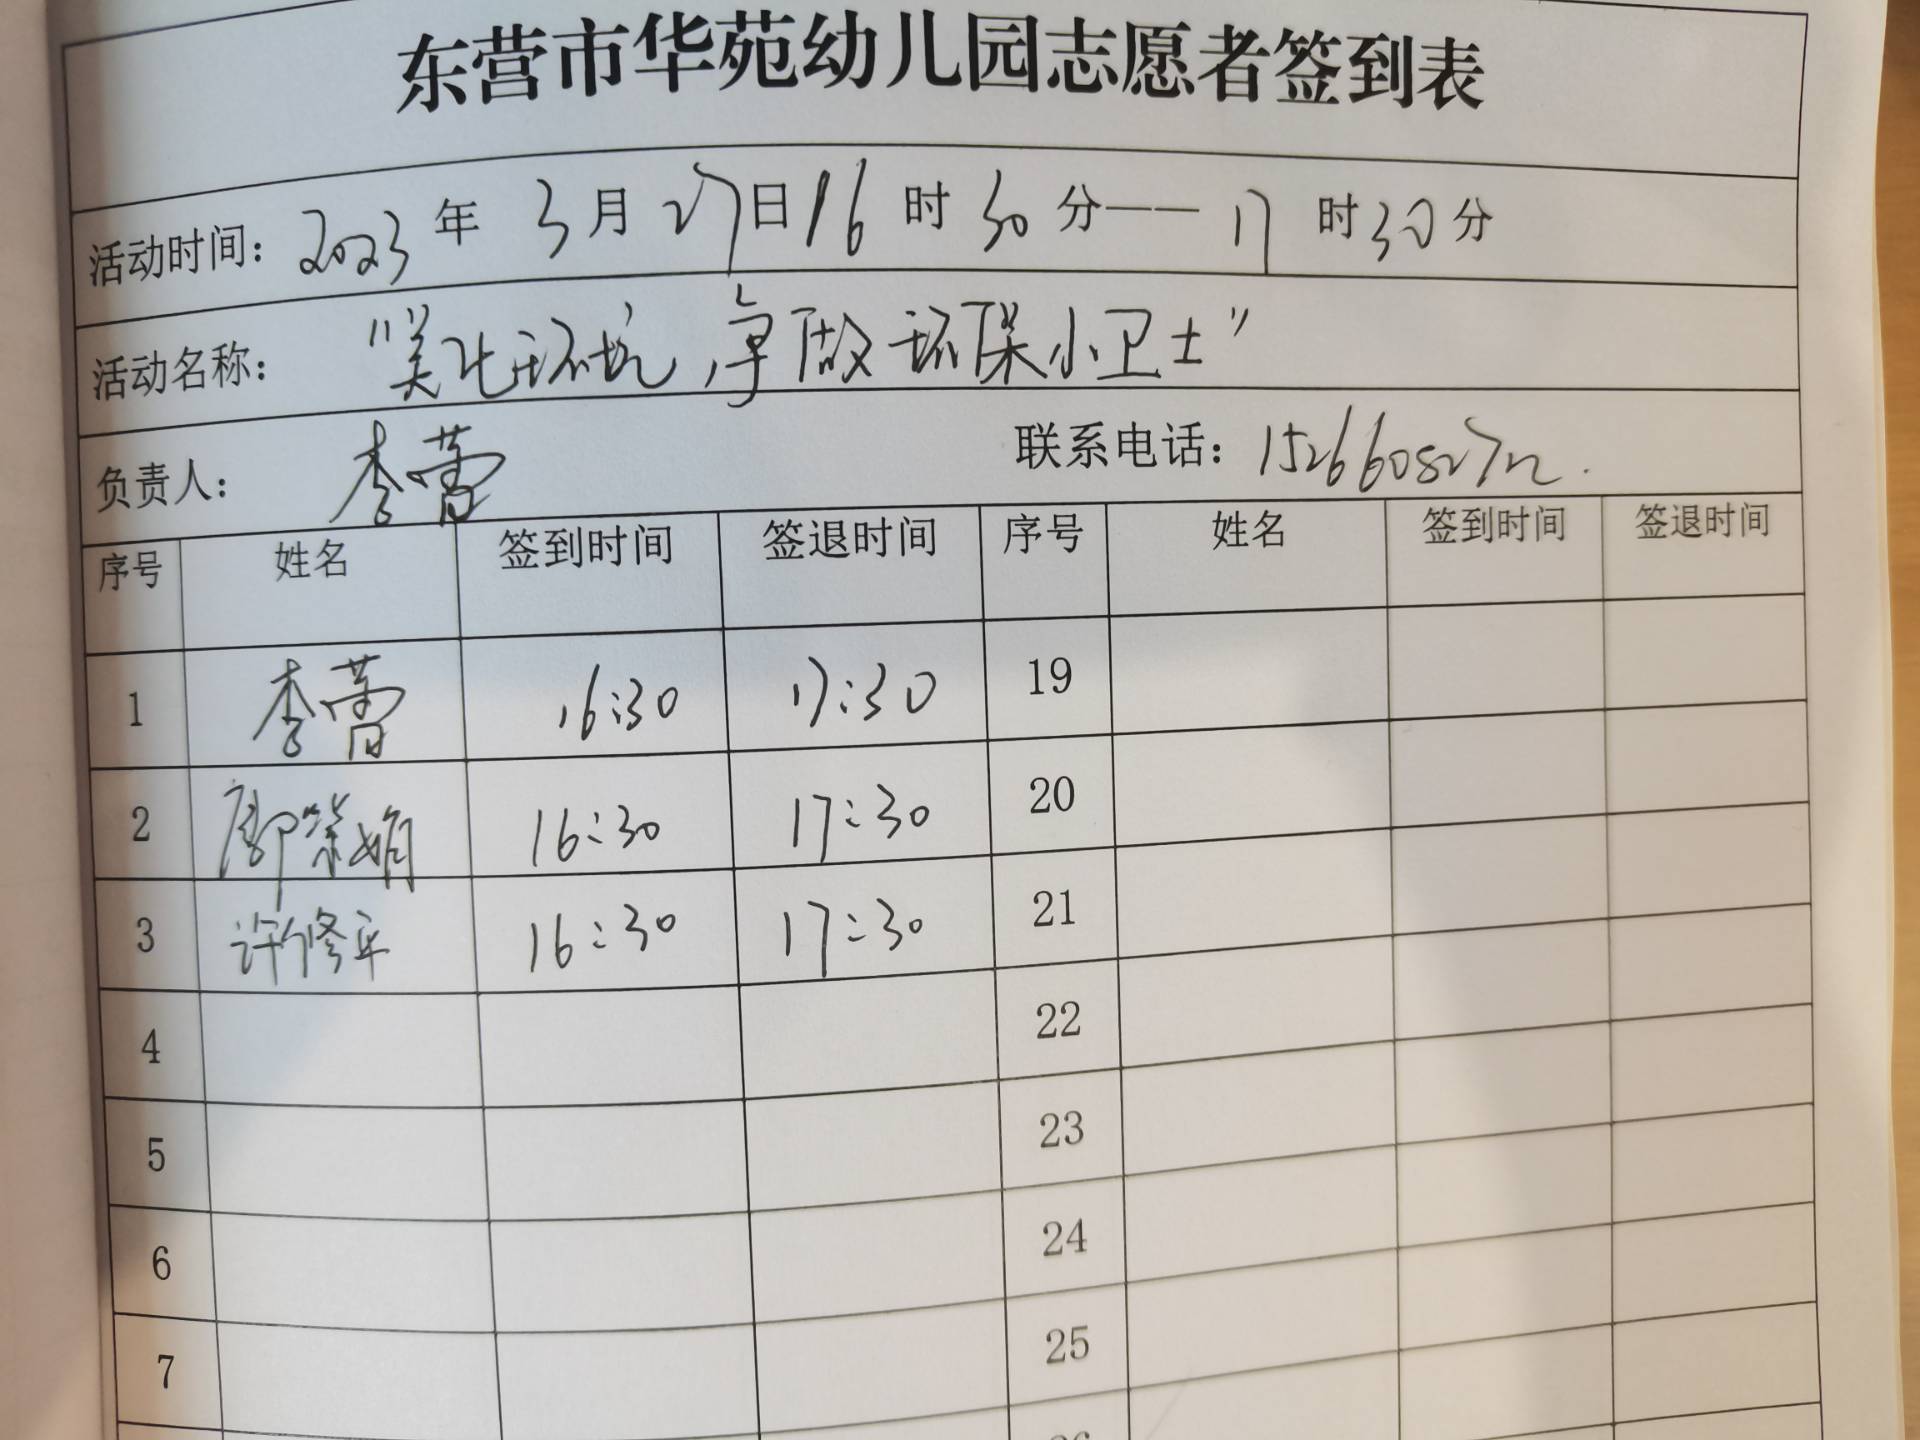 东营市华苑幼儿园志愿者签到表
活动时间：2023年 3月27日16时30分——17时30分
活动名称： “美化环境，争做环保小卫士”
负责人： 李蕾 联系电话：
序号 姓名 签到时间 签退时间 序号 姓名 签到时间 签退时间
1 李蕾 16:30 17:30 19
2 16:30 17:30 20
3 许修平 16:30 17:30 21
4 22
5 23
6 24
7 25